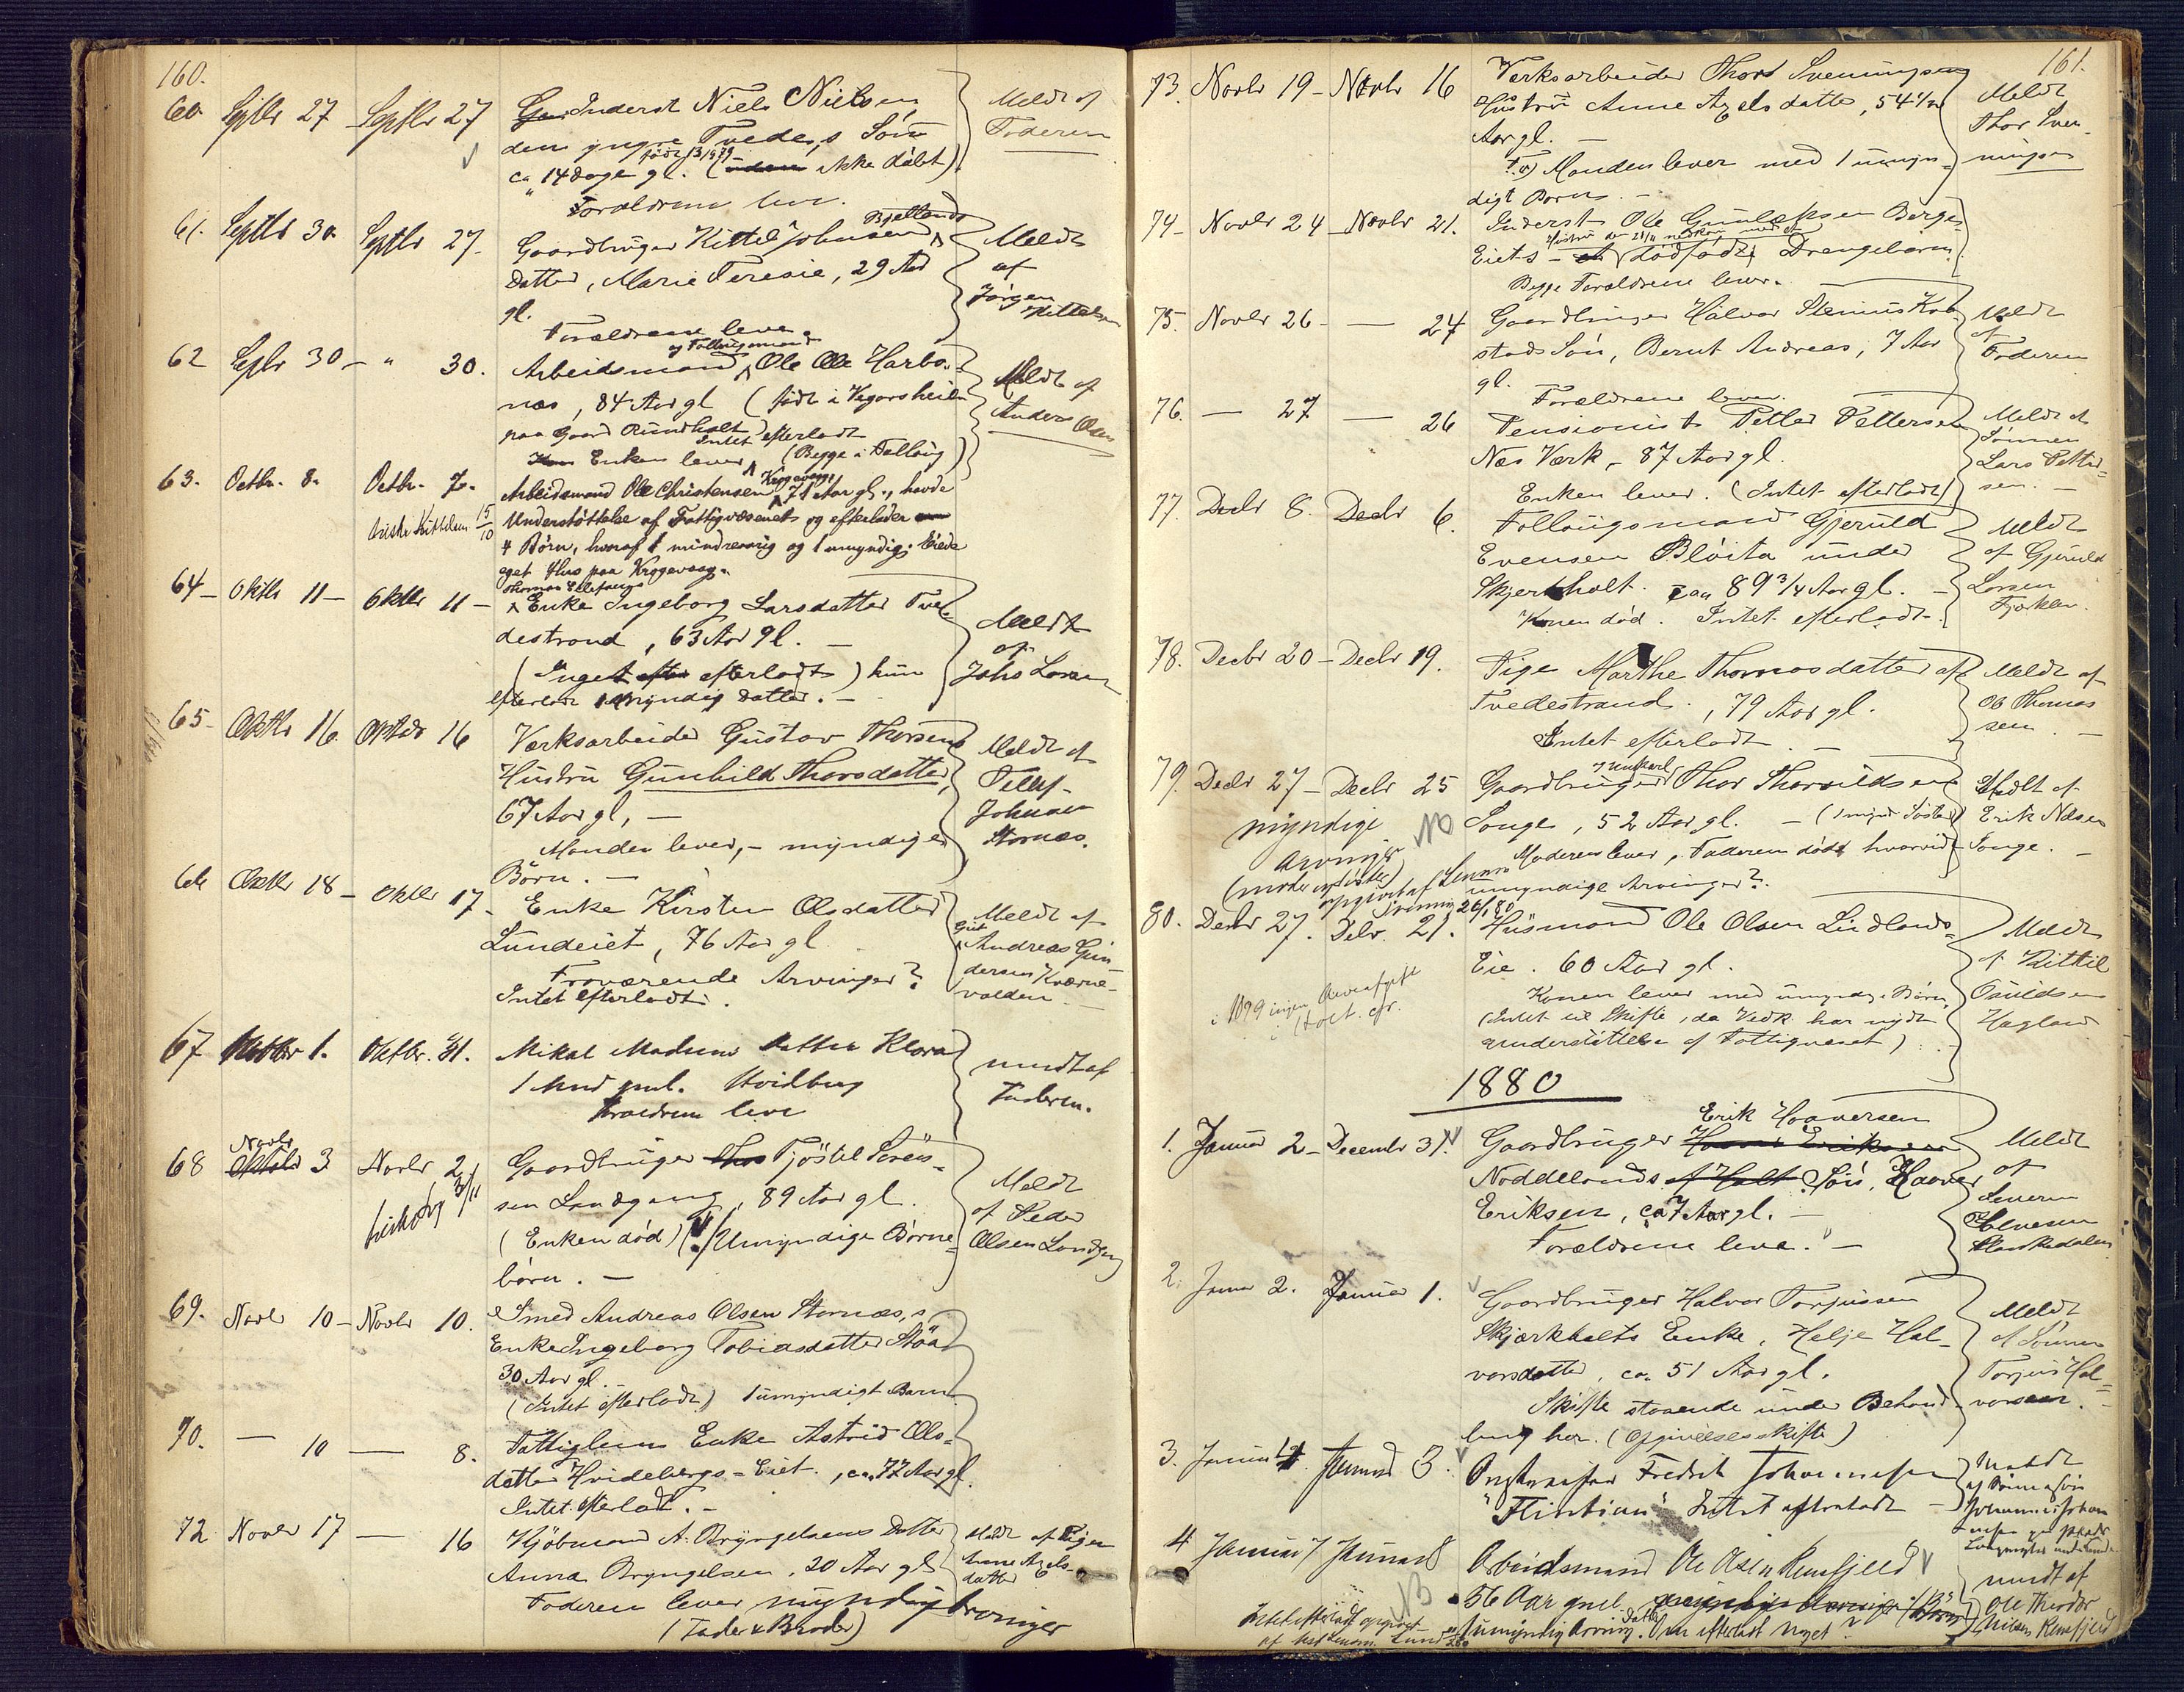 160.
60. Septbr 27 Septbr 27 Inderst Niels Nielsen
dem yngre Tvede,s Søn
født 13/9 79
ca 14 dage gl. (ikke døbt)
Forældrene lever.
Meldt af
Faderen
61. Septbr 30. Septbr 27. Gaardbruger Kittel Johnsen Bjellands
Datter, Marie Teresie, 29 Aar
gl.
Forældrene leve.
Meldt
af
Jørgen
Kittelsen
62 Septbr 30 - " 30. Arbeidsmand og Føllougsmand Ole Olsen Harbo-
næs, 84 Aar gl (født i Vegorsheien
paa Gaard Rundholt
Intet efterladt
Enken lever, (Begge i Følloug)
Meldt af
Anders Olsen
63. Octbr. 8. Octbr. 7. Arbeidsmand Ole Christensen Krogevaag, 71 Aar gl., havde
15/10 Understøttelse af Fattigvæsenet og efterlader
4 Børn, hvoraf 1 mindreaarig og 1 umyndig. Eiede
eget Hus paa Krogevaag.
64 - Oktbr 11 - Oktbr 11 - Thomas Ellefsens
Enke Ingeborg Larsdatter Tve-
destrand, 63 Aar gl. -
(Inget efterladt) hun
efterlod 1 myndig Datter. -
Meldt
af
Johs Larsen
65 - Oktbr 16. Oktbr 16 Værksarbeider Gustav Thorsens
Hustru Gunhild Thorsdatter,
67 Aar gl, -
Manden lever, - myndige
Børn. -
Meldt af
Tellef
Johnsen
Stornæs.
66 Oktbr 18 - Oktbr 17 - Enke Kirsten Olsdatter
Lundeiet, 76 Aar gl
Fraværende Arvinger?
Intet efterladt.
Meldt af
Andreas Gun-
dersen Kværne-
volden -
67 1. Oktbr. 31. Mikal Madsens datter Klara
1 Mnd gml. Hvidberg
Forældrene leve
meldt af
Faderen.
68 Novbr 3 Novbr 2 3/11 Gaardbruger Tjøstel Sørens-
sen Landgang, 89 Aar gl.
(Enken død) Umyndige Børne-
børn. -
Meldt
af Peder
Olsen Landgang
69. Novbr 10 - Novbr 10. Smed Andreas Olsen Stornæs,s
Enke Ingeborg Tobiasdatter Støa
30 Aar gl. -
(Intet efterladt) 1 umyndigt Barn
70. — 10 — 8. Fattiglem Enke Astrid Ols-
datter Hvidebergs-Eiet., ca 77 Aar gl.
Intet efterladt. -
72 Novbr 17 — 16 Kjøbmand A. Bryngelsens Datter
Anna Bryngelsen, 20 Aar gl
Faderen lever myndig Arvinger
(Fader & Broder)
Meldt af Pigen
Anne Axels-
datter
161.
73. Novbr 19 - Novbr 16 Værksarbeider Thor Sveningsen
Hustru Anne Axelsdatter, 54 1/2
Aar gl. -
Manden lever med 1 umyn-
digt Barn. -
Meldt
Thor Sven-
ningsen
74 - Novbr 24 - Novbr 21. Inderst Ole Gunlaksen Berge-
Hustru den 21/11 nedkom med et
Eiets - dødfødt Drengebarn.
Begge Forældrene lever.
75. Novbr 26 - — 24 Gaardbruger Halvor Stenius Kob-
stads Søn, Bernt Andreas, 7 Aar
gl.
Forældrene lever.
Meldt
af
Faderen
76. — 27 — 26 Pensionist Petter Pettersen
Næs Værk, - 87 Aar gl.
Enken lever. (Intet efterladt)
Meldt af
Sønnen
Lars Petter-
sen. -
77. Decbr 8. Decbr 6. Føllougsmand Gjeruld
Evensen Bløita under
Skjerkholt. ca 89 3/4 Aar gl. -
Konen død. Intet efterladt.
Meldt
af Gjeruld
Larsen
78. Decbr 20 - Decbr 19. Pige Marthe Thomasdatter af
Tvedestrand., 79 Aar gl.
Intet efterladt. -
Meldt af
Ole Thomas
sen. -
79. Decbr 27 - Decbr 25 Gaardbruger Ungkarl Thor Thorvildsen
Songe, 52 Aar gl. - (1 myndig Søster)
Moderen lever, Faderen død hvorvidt
umyndige Arvinger?
myndige
Arvinger
(moder og søster)
opgivet af
26/1 80
Meldt af
Erik Nilsen
Songe. -
80. Decbr 27. Decbr. 21. Husmand Ole Olsen Lindlands-
Eie. 60 Aar gl.
Konen lever med umyndige Børn,
(Intet til Skifte, da Vedk. har nydt
Understøttelse af Fattigvæsenet)
ingen Arveafgift
i Holt.
Meldt
af Kittil
Osuldsen
Hagland
1880
1. Januar 2 - Decembr 31. Gaardbruger Erik Haaversen
Noddelands Søn, Haaver
Eriksen, ca 7 Aar gl. -
Forældrene leve. -
Meldt
af
2. Januar 2. Januar 1. Gaardbruger Halvor Torjussen
Skjærkholts Enke, Helje Hal-
vorsdatter, ca. 51 Aar gl.
Skifte staaende under Behand-
ling her. (Opgivelsesskifte)
Meldt
af Sønnen
Torjus Hal-
vorsen. -
3. Januar Januar 3. Fredrik Johannesen
Intet efterladt -
Meldt
4 Januar 7 Januar Arbeidsmand Ole Olsen Rensfjeld
56 Aar gml.
1 umyndig Arving. Om efterladt noget?
Intet efterladt opgivet
meldt af
Ole Theodor
Nilsen Rensfjeld